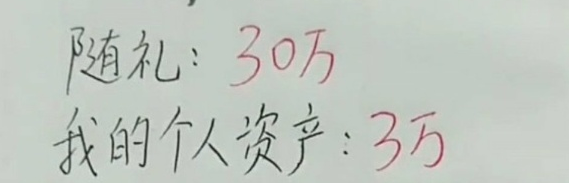 随礼：30万
我的个人资产：3万